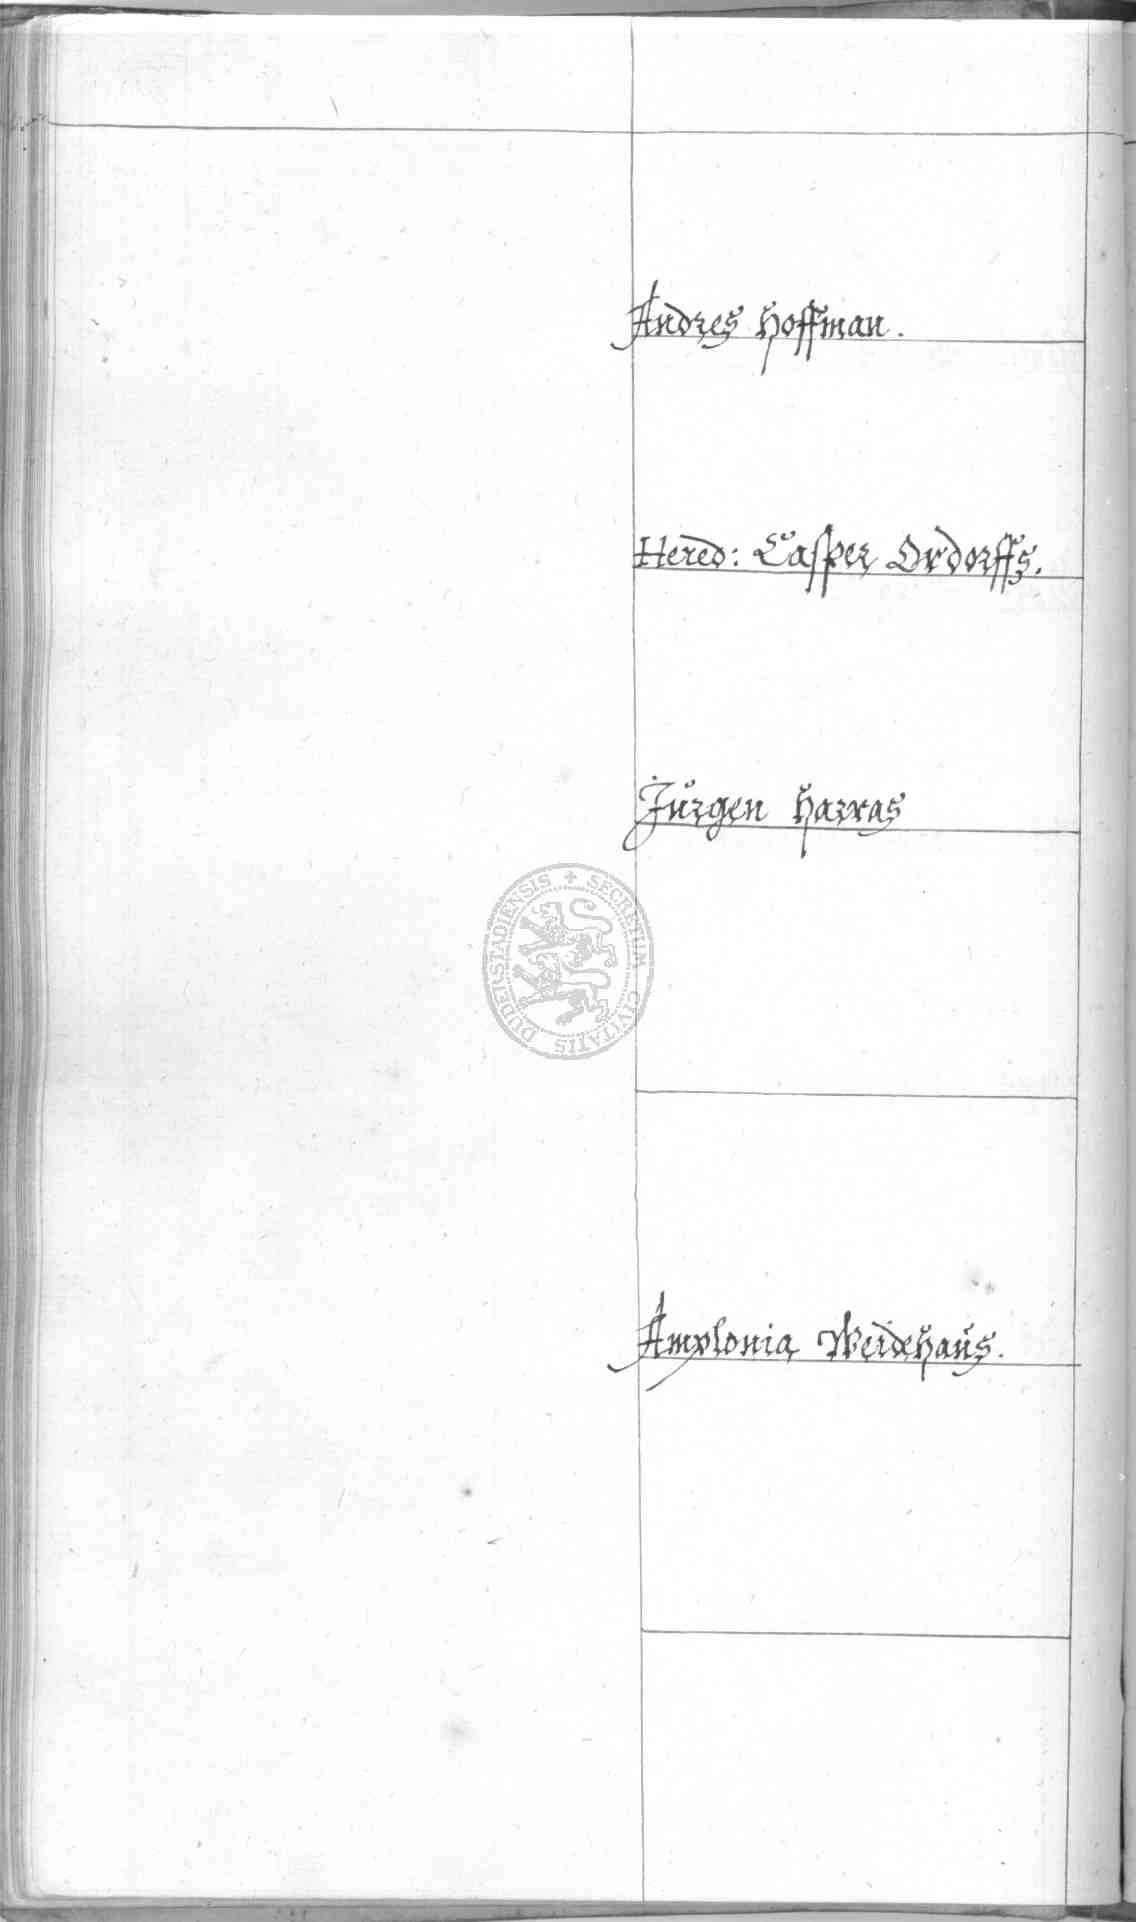 Andres Hoffman.
Hered: Casper Ordorffs.
Jürgen Harras
SECRETUM CIVITATIS DUDERSTADIENSIS
Amplonia Weidehaus.